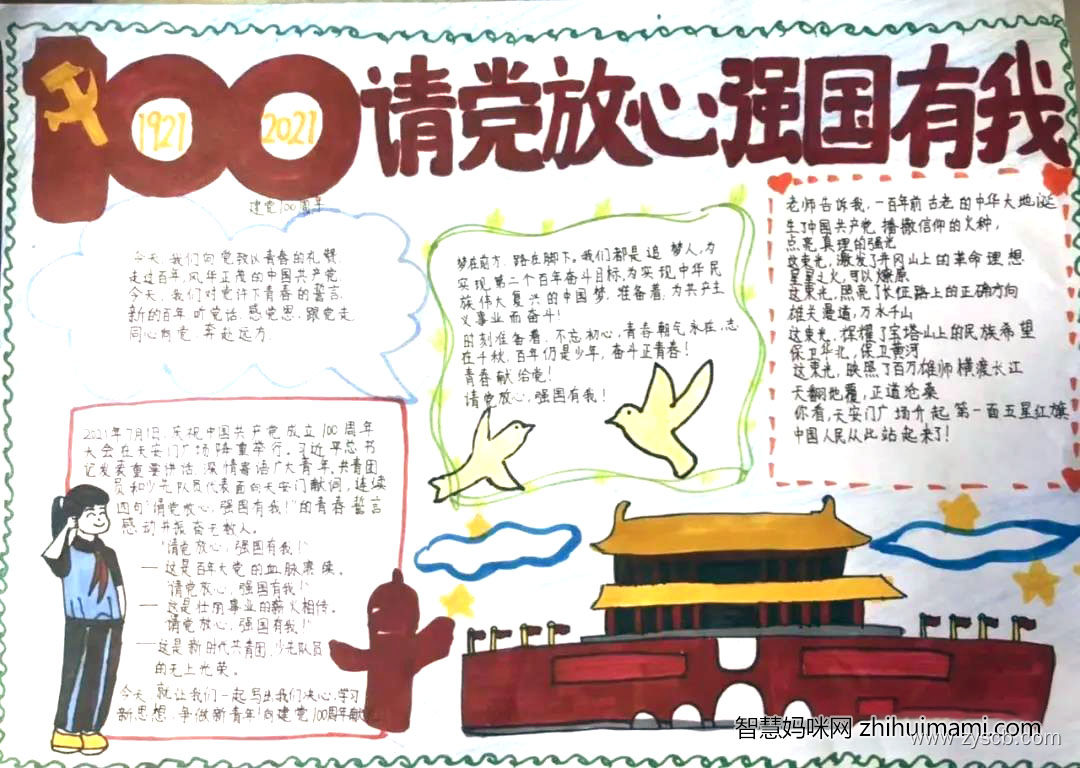 1921
2021
请党放心强国有我
建党100周年
今天,我们向党致以青春的礼赞
走过百年,风华正茂的中国共产党
今天,我们对党许下青春的誓言
新的百年 听党话 感党恩 跟党走
同心向党 奔赴远方
梦在前方,路在脚下,我们都是追梦人,为
实现第二个百年奋斗目标,为实现中华民
族伟大复兴的中国梦,准备着,为共产主
义事业而奋斗!
时刻准备着,不忘初心,青春朝气永在,志
在千秋,百年仍是少年,奋斗正青春!
青春献给党!
请党放心,强国有我!
老师告诉我,一百年前古老的中华大地诞
生了中国共产党,播撒信仰的火种,
点亮真理的强光
这束光,激发了井冈山上的革命理想
星星之火,可以燎原
这束光,照亮了长征路上的正确方向
雄关漫道,万水千山
这束光,辉耀了宝塔山上的民族希望
保卫华北,保卫黄河
这束光,映照了百万雄师横渡长江
天翻地覆,正道沧桑
你看,天安门广场升起第一面五星红旗
中国人民从此站起来了!
2021年7月1日,庆祝中国共产党成立100周年
大会在天安门广场隆重举行。习近平总书
记发表重要讲话,深情寄语广大青年,共青团
员和少先队员代表面向天安门献词,连续
四句“请党放心,强国有我!”的青春誓言
感动并振奋无数人。
“请党放心,强国有我!”
—这是百年大党的血脉赓续。
“请党放心,强国有我!”
—这是壮丽事业的薪火相传。
“请党放心,强国有我!”
—这是新时代共青团,少先队员
的无上光荣。
今天,就让我们一起写出我们决心,学习
新思想,争做新青年!向建党100周年献礼
智慧妈咪网 zhihuimami.com
www.zyscb.com